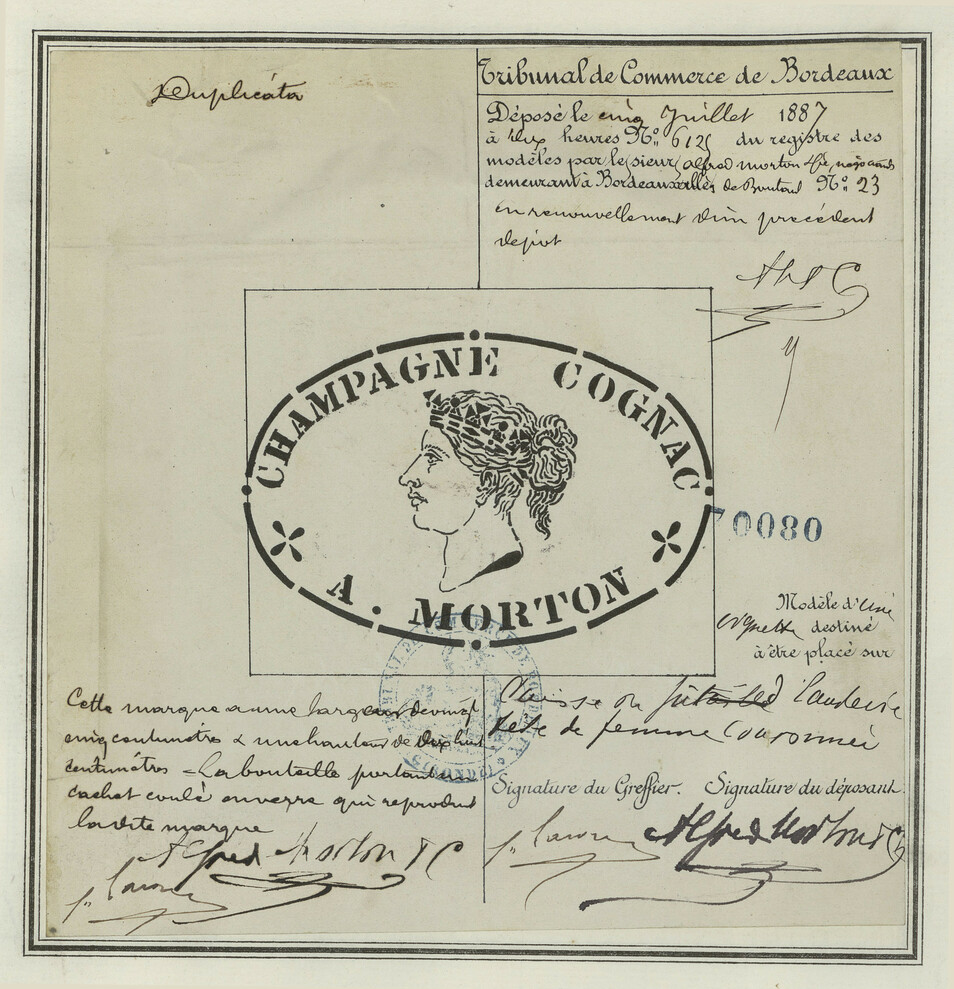 Duplicata
Tribunal de Commerce de Bordeaux
Déposé le cinq Juillet 1887
à dix heures Nº 6125 du registre des
modèles par le sieur alfred morton & Cie, négociants
demeurant à Bordeaux allées de Boutaut Nº 23
en renouvellement d'un précédent
dépôt
CHAMPAGNE COGNAC
A. MORTON
70080
Modèle d'une
vignette destiné
à être placé sur
Cette marque a une largeur de vingt
cinq centimètres & une hauteur de dix huit
centimètres = La bouteille portant un
cachet coulé en verre qui reproduit
la dite marque
Caisse ou
tête de femme couronnée
Signature du Greffier. Signature du déposant.
Alfred Morton & C
Alfred Morton & C